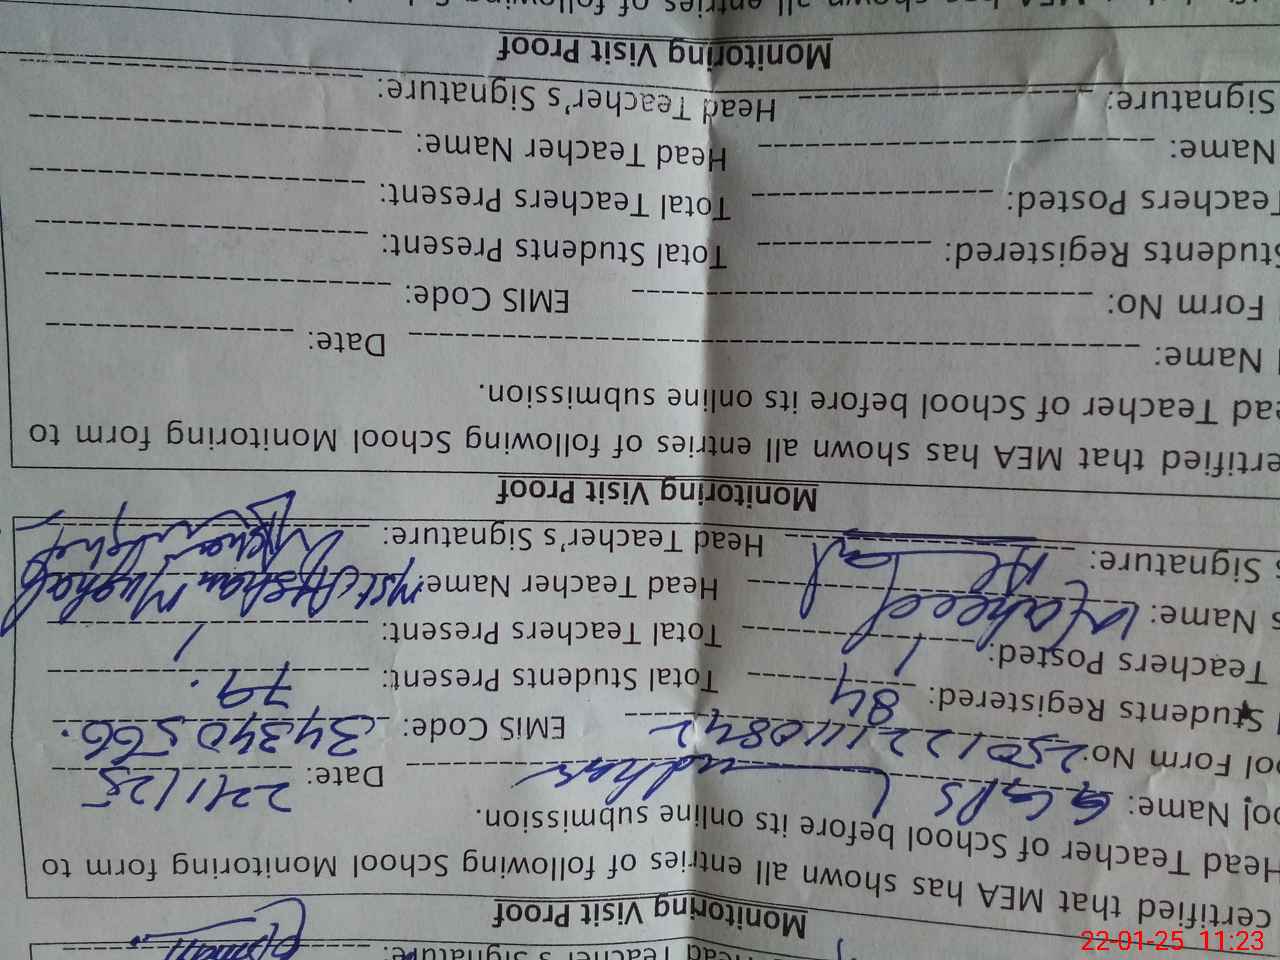 Head Teacher's Signature:
Monitoring Visit Proof
certified that MEA has shown all entries of following School Monitoring form to
Head Teacher of School before its online submission.
ool Name: GGPS Date: 22/1/25
ool Form No: 2501221110842 EMIS Code: 34340566.
Students Registered: 84 Total Students Present: 79.
Teachers Posted: 1 Total Teachers Present: 1
s Name: Waheed Head Teacher Name: Mst Afshan Mughal
s Signature: Head Teacher's Signature:
Monitoring Visit Proof
ertified that MEA has shown all entries of following School Monitoring form to
ead Teacher of School before its online submission.
Name: Date:
Form No: EMIS Code:
Students Registered: Total Students Present:
Teachers Posted: Total Teachers Present:
Name: Head Teacher Name:
Signature: Head Teacher's Signature:
Monitoring Visit Proof
MEA has shown all entries of following
22-01-25 11:23